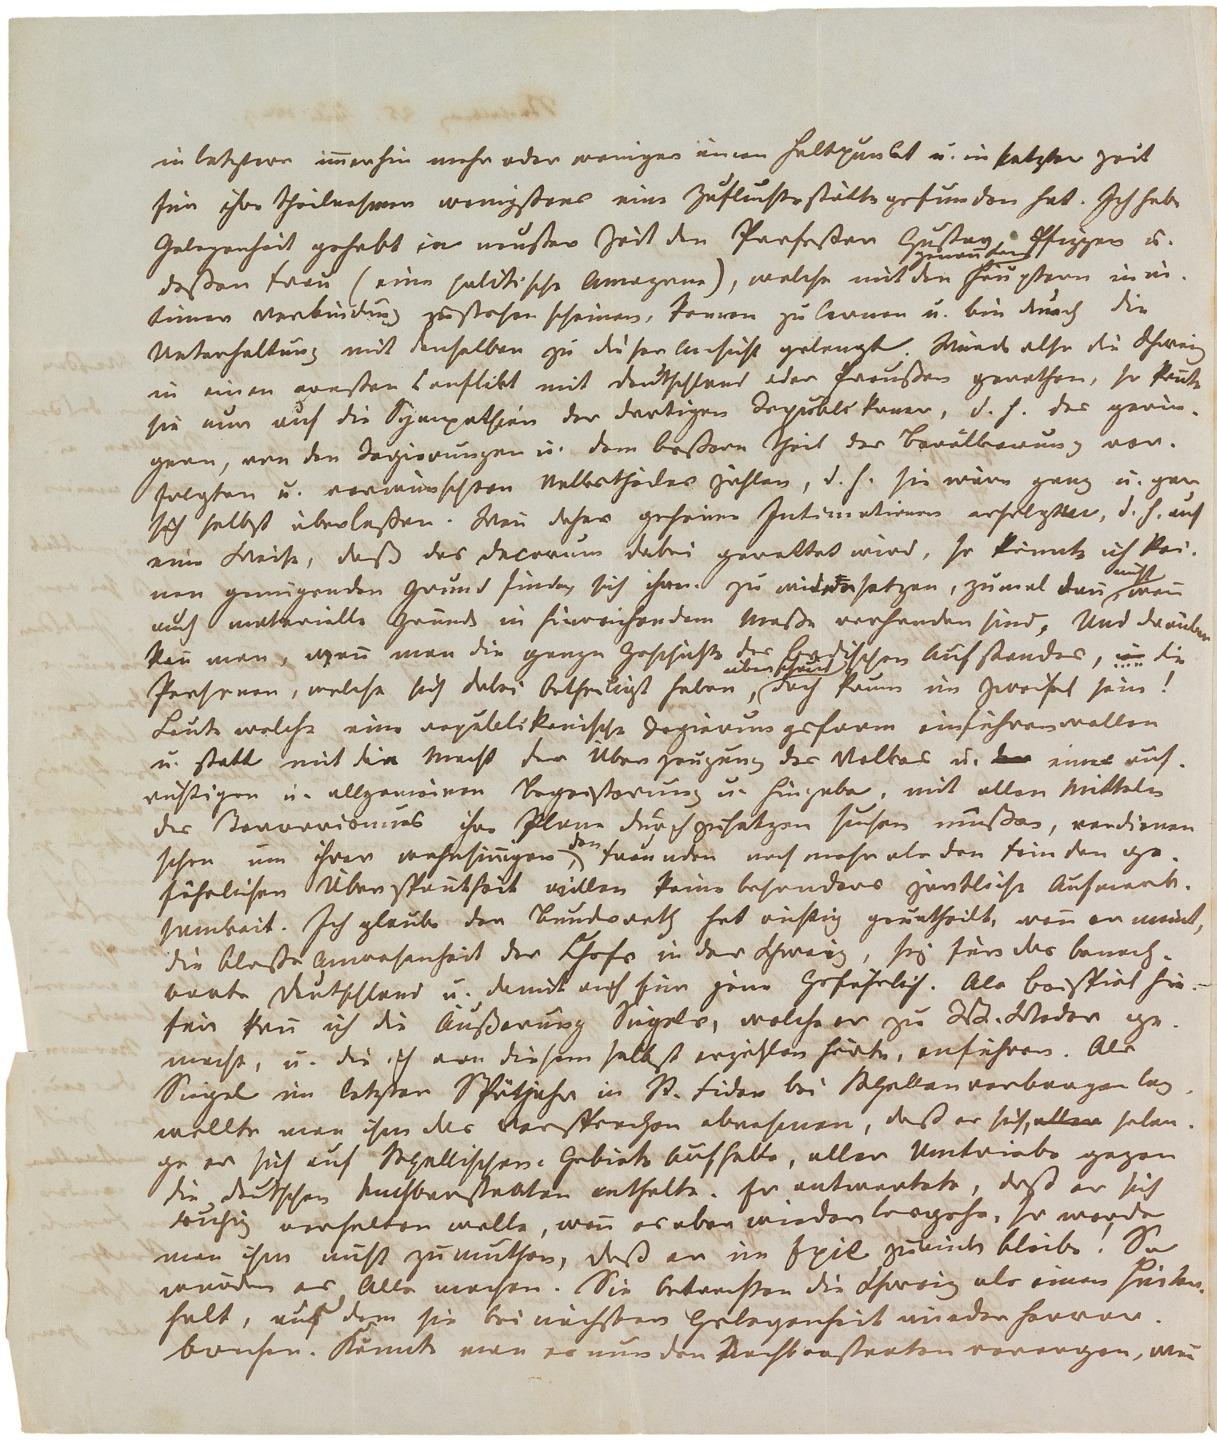 in letzterer immerhin mehr oder weniger einen Haltpunkt u. in letzter Zeit
für ihre Theilnehmer wenigstens eine Zufluchtsstätte gefunden hat. Ich habe
Gelegenheit gehabt in neuster Zeit den Professor Gustav Pfizer u.
dessen Frau (eine politische Amazone), welche mit den genannten Häuptern in in-
timer Verbindung zu stehen scheinen, kennen zu lernen u. bin durch die
Unterhaltung mit denselben zu dieser Ansicht gelangt. Würde also die Schweiz
in einen ernsten Conflikt mit Deutschland oder Preußen gerathen, so könnte
sie nur auf die Sympathien der dortigen Republikaner, d. h. des gerin-
gern, von den Regierungen u. dem bessern Theil der Bevölkerung ver-
folgten u. verwünschten Volkstheiles zählen, d. h. sie wäre ganz u. gar
sich selbst überlassen. Wenn daher geheime Intimationen erfolgten, d. h. auf
eine Weise, daß das Decorum dabei gerettet wird, so könnte ich kei-
nen genügenden Grund finden sich ihnen zu widersetzen, zumal dann nicht wenn
auch materielle Gründe in hinreichendem Maße vorhanden sind. Und darüber
kann man, wenn man die ganze Geschichte des badischen Aufstandes, die
Personen, welche sich dabei betheiligt haben, überschaut doch kaum im Zweifel sein!
Leute welche eine republikanische Regierungsform einführen wollen
u. statt mit der Macht der Überzeugung des Volkes u. einer auf-
richtigen u. allgemeinen Begeisterung u. Hingabe, mit allen Mitteln
des Terrorismus ihre Plane durchzusetzen suchen müßen, verdienen
schon um ihrer wahnsinnigen, den Freunden noch mehr als den Feinden ge-
fährlichen Überspanntheit willen keine besonders zärtliche Aufmerk-
samkeit. Ich glaube der Bundesrath hat richtig geurtheilt, wenn er meint,
die bloße Anwesenheit der Chefs in der Schweiz, sei für das benach-
barte Deutschland u. damit auch für jene gefährlich. Als Beispiel hie-
für kann ich die Äußerung Siegels, welche er zu Weder ge-
macht, u. die ich von diesem selbst erzählen hörte, anführen. Als
Siegel im letzten Spätjahr in St. Fiden bei St. Gallen verborgen lag
wollte man ihm das Versprechen abnehmen, daß er sich, solan-
ge er sich auf St. Gallischem Gebiete aufhalte, aller Umtriebe gegen
die deutschen Nachbarstaaten enthalte. Er antwortete, daß er sich
ruhig verhalten wolle, wenn es aber wieder losgehe, so werde
man ihm nicht zumuthen, daß er im Exil zurück bleibe! So
würden es Alle machen. Sie betrachten die Schweiz als einen Hinter-
halt, aus dem sie bei nächster Gelegenheit wieder hervor-
brechen. Könnte man es nun den Nachbarstaaten verargen, wenn